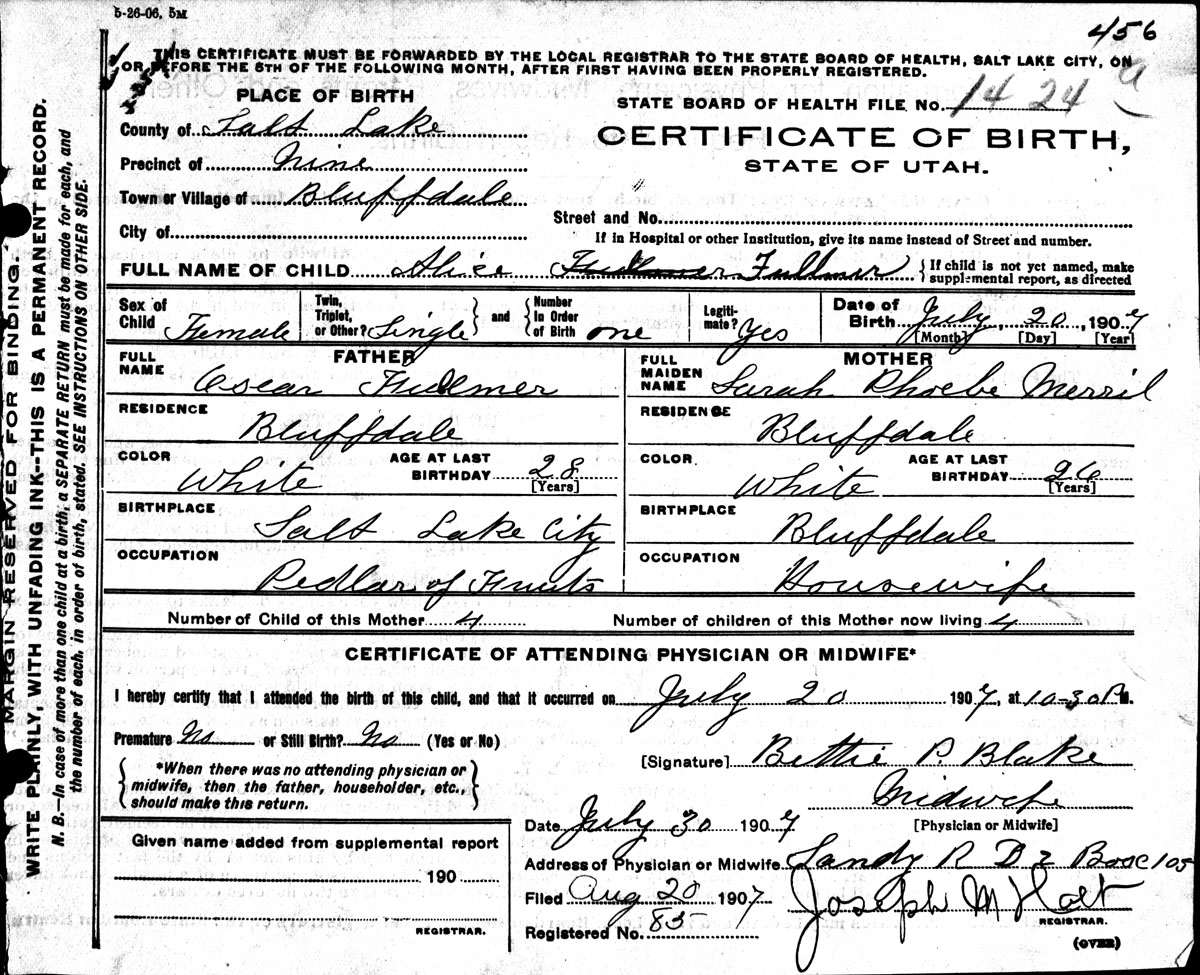 5-26-06, 5M
456
THIS CERTIFICATE MUST BE FORWARDED BY THE LOCAL REGISTRAR TO THE STATE BOARD OF HEALTH, SALT LAKE CITY, ON
OR BEFORE THE 5TH OF THE FOLLOWING MONTH, AFTER FIRST HAVING BEEN PROPERLY REGISTERED.
PLACE OF BIRTH
STATE BOARD OF HEALTH FILE No. 14 24 a
County of Salt Lake
CERTIFICATE OF BIRTH,
Precinct of Nine
STATE OF UTAH.
Town or Village of Bluffdale
Street and No.
City of
If in Hospital or other Institution, give its name instead of Street and number.
FULL NAME OF CHILD Alice Fullmer
{If child is not yet named, make
supplemental report, as directed
Sex of Child Female
Twin, Triplet, or Other? Single
and
Number In Order of Birth one
Legiti- mate? Yes
Date of Birth July, 20, 1907
[Month] [Day] [Year]
FATHER
FULL NAME Oscar Fullmer
RESIDENCE
Bluffdale
COLOR White
AGE AT LAST BIRTHDAY 28
[Years]
BIRTHPLACE
Salt Lake City
OCCUPATION
Pedlar of Fruits
MOTHER
FULL MAIDEN NAME Sarah Phoebe Merril
RESIDENCE
Bluffdale
COLOR White
AGE AT LAST BIRTHDAY 26
[Years]
BIRTHPLACE
Bluffdale
OCCUPATION
Housewife
Number of Child of this Mother 4
Number of children of this Mother now living 4
CERTIFICATE OF ATTENDING PHYSICIAN OR MIDWIFE*
I hereby certify that I attended the birth of this child, and that it occurred on July 20 1907, at 10-30 P M.
Premature No or Still Birth? No (Yes or No)
[Signature] Bettie P. Blake
*When there was no attending physician or
midwife, then the father, householder, etc.,
should make this return.
Midwife
[Physician or Midwife]
Date July 30 1907
Given name added from supplemental report
190
REGISTRAR.
Address of Physician or Midwife Sandy R D 2 Box 105
Filed Aug 20 1907
Joseph M Holt
REGISTRAR.
Registered No. 85
(OVER)
MARGIN RESERVED FOR BINDING.
WRITE PLAINLY, WITH UNFADING INK--THIS IS A PERMANENT RECORD.
N. B.—In case of more than one child at a birth, a SEPARATE RETURN must be made for each, and
the number of each, in order of birth, stated. SEE INSTRUCTIONS ON OTHER SIDE.